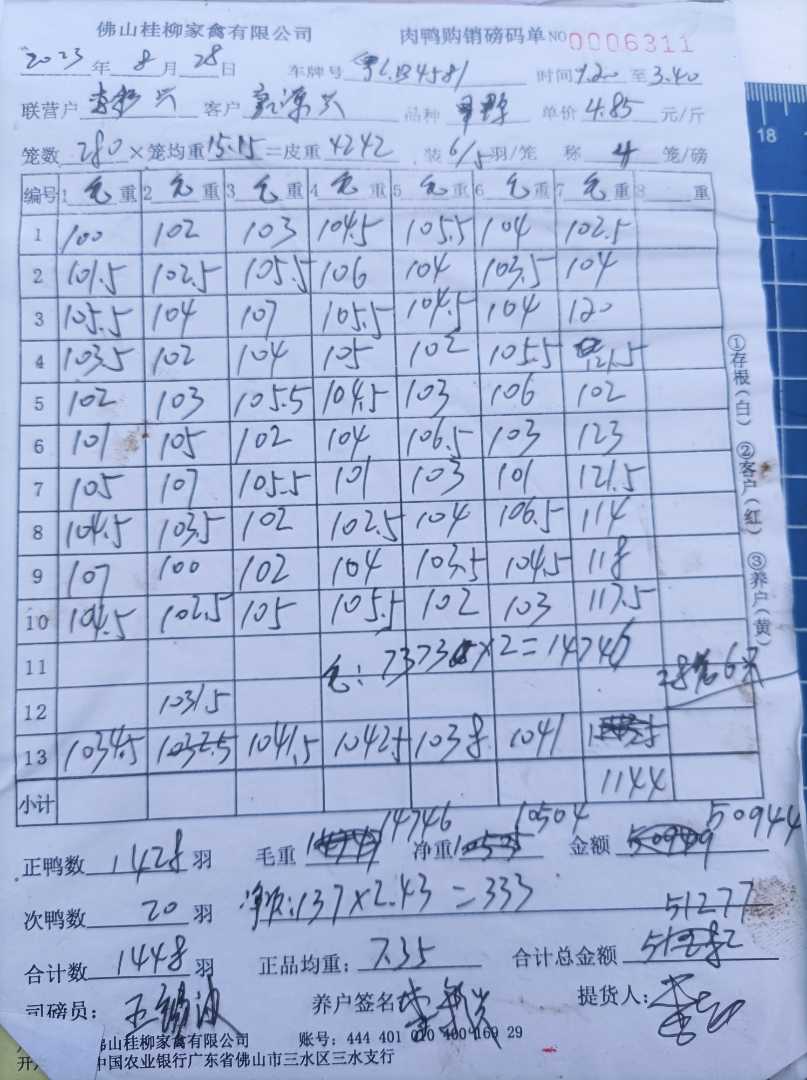 佛山桂柳家禽有限公司 肉鸭购销磅码单 NO 0006311
2023 年 8 月 28 日 车牌号 时间 9.20 至 3.40
联营户 客户 品种 单价 4.85 元/斤
笼数 280 ×笼均重 15.15 =皮重 4242 装 6/5 羽/笼 称 4 笼/磅
编号 1 毛 重 2 毛 重 3 毛 重 4 毛 重 5 毛 重 6 毛 重 7 毛 重 8 重
1 100 102 103 104.5 105.5 104 102.5
2 101.5 102.5 105.5 106 104 103.5 104
3 105.5 104 107 105.5 104.5 104 120
4 103.5 102 104 105 102 105.5 121.5
5 102 103 105.5 104.5 103 106 102
6 101 105 102 104 106.5 103 123
7 105 107 105.5 101 103 101 121.5
8 104.5 103.5 102 102.5 104 106.5 114
9 107 100 102 104 103.5 104.5 118
10 104.5 102.5 105 105.5 102 103 117.5
11 毛: 7373 ×2=14746
28笼6只
12 1031.5
13 1034.5 1041.5 1042.5 1038 1041
小计 1144
14746 10504 50944
正鸭数 1428 羽 毛重 净重 金额
次鸭数 20 羽 净次:137×2.43=333 51277
合计数 1448 羽 正品均重: 7.35 合计总金额
司磅员: 养户签名 提货人:
佛山桂柳家禽有限公司 账号: 444 401 010 400 169 29
中国农业银行广东省佛山市三水区三水支行
①存根(白) ②客户(红) ③养户(黄)
18